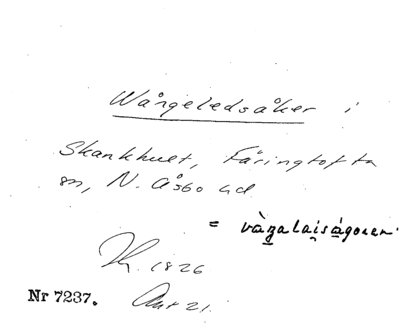 Wångeledsåker i
Skankhult, Färingtofta
sn, N. Åsbo hd
= vàgalaiságorer
1826
Nr 7237. Akt 21.